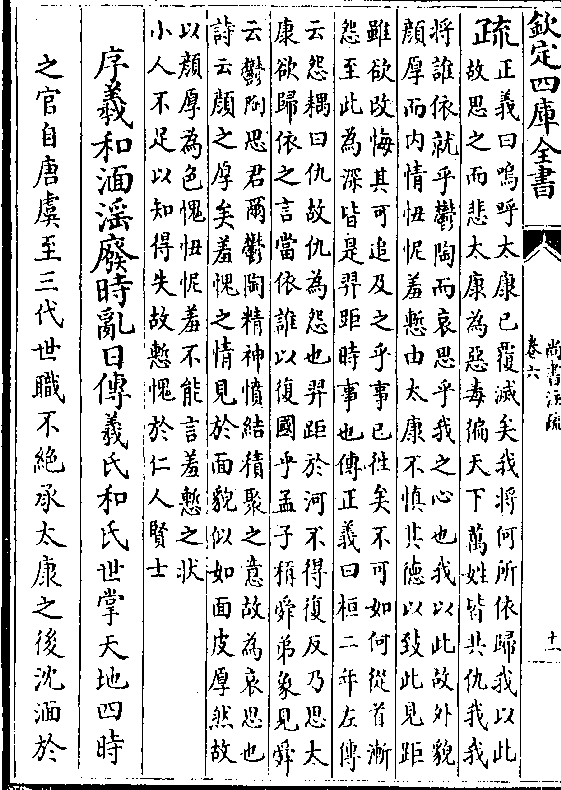 欽定四庫全書
尚書注疏
卷六
十一
疏
正義曰嗚呼太康已覆滅矣我將何所依歸我以此
故思之而悲太康為惡毒徧天下萬姓皆共仇我我
將誰依就乎鬱陶而哀思乎我之心也我以此故外貌
顔厚而内情忸怩羞慙由太康不慎其德以致此見距
雖欲改悔其可追及之乎事已往矣不可如何從首漸
怨至此為深皆是羿距時事也傳正義曰桓二年左傳
云怨耦曰仇故仇為怨也羿距於河不得復反乃思太
康欲歸依之言當依誰以復國乎孟子稱舜弟象見舜
云鬱陶思君爾鬱陶精神憤結積聚之意故為哀思也
詩云顔之厚矣羞愧之情見於面貌似如面皮厚然故
以顔厚為色愧忸怩羞不能言羞慙之狀
小人不足以知得失故慙愧於仁人賢士
序羲和湎淫廢時亂日傳羲氏和氏世掌天地四時
之官自唐虞至三代世職不絶承太康之後沈湎於